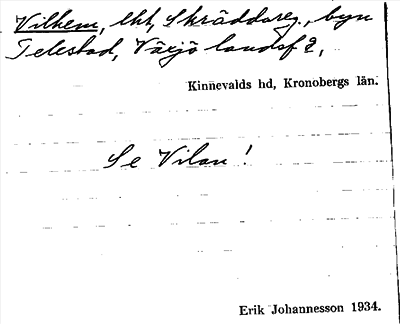 Vilhem, lht, Skräddareg., byn
Telestad, Växjö landsf 2,
Kinnevalds hd, Kronobergs län.
Se Vilan!
Erik Johannesson 1934.